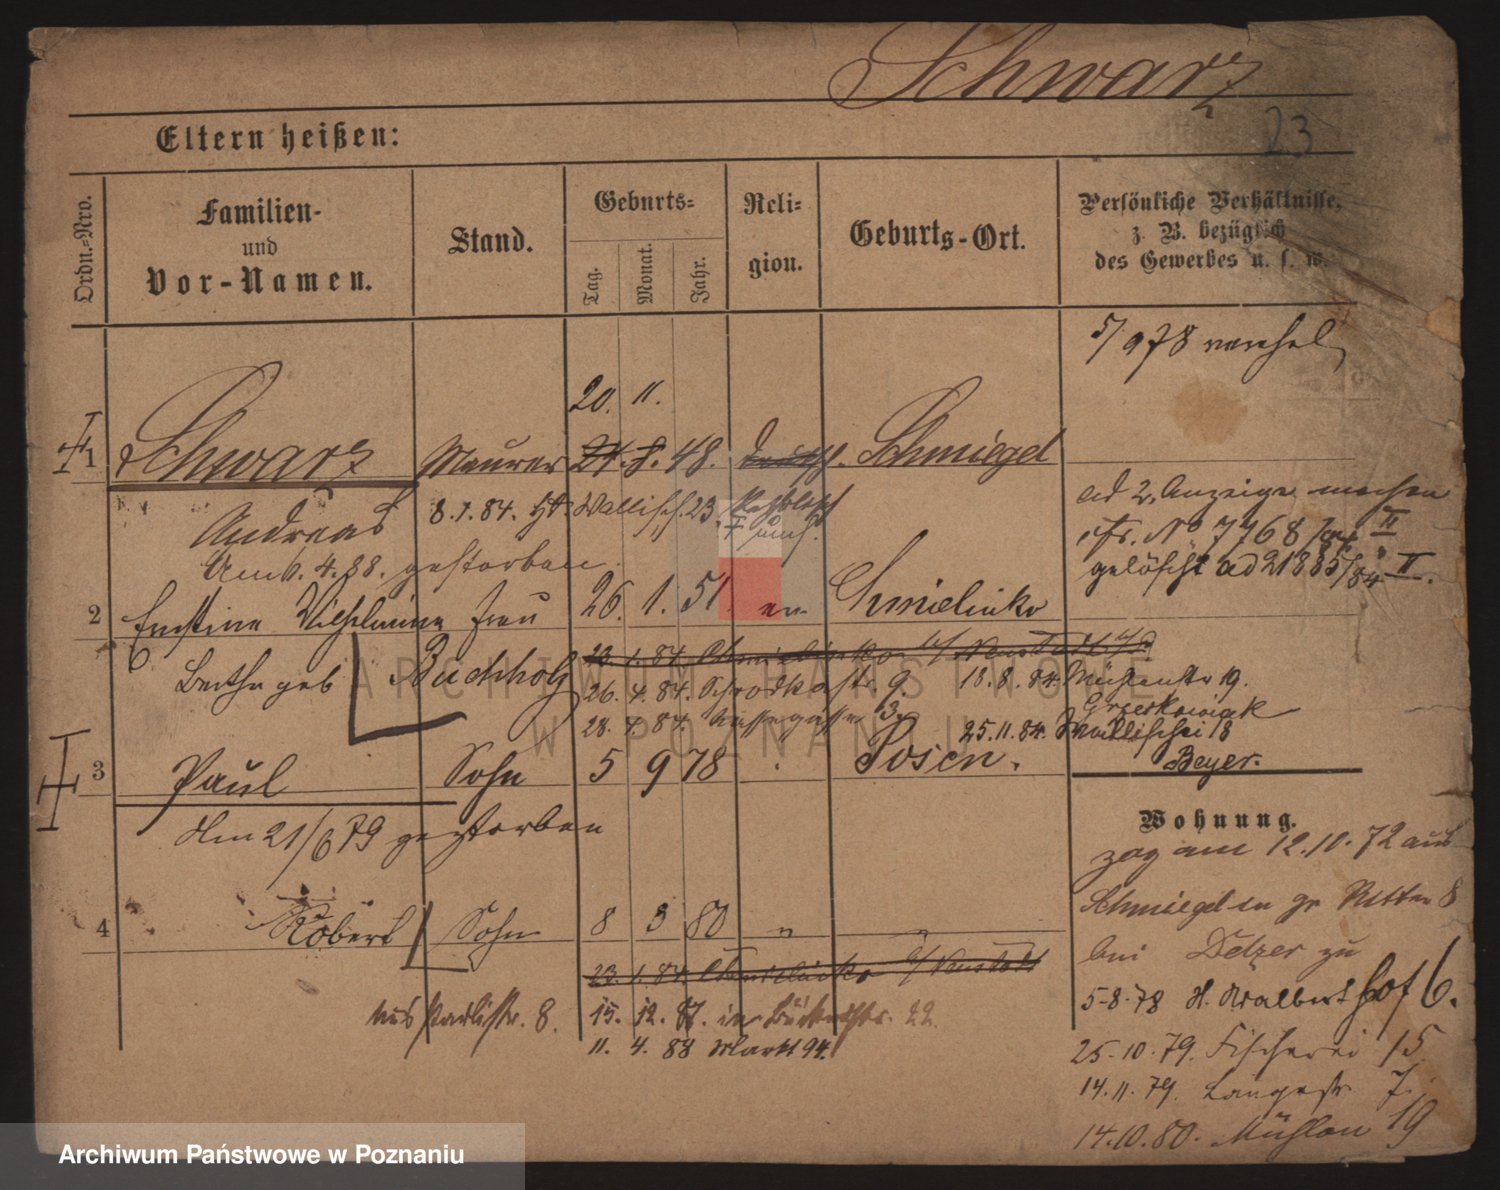 Schwarz
23
Eltern heißen:
Ordn.-Nro.
Familien-
und
Vor-Namen.
Stand.
Geburts-
Tag.
Monat.
Jahr.
Reli-
gion.
Geburts-Ort.
Persönliche Verhältnisse,
z. B. bezüglich
des Gewerbes u. s. w.
5/9 78
20. 11.
1 Schwarz Maurer 48. Schmiegel
Andreas
8.1.84. Wallisch. 23
4. 88. gestorben
ad 2, Anzeige machen
cfr. No 7768/84 II
gelöscht ad 21885/84 II.
2 Ernstine Wilhelmine Frau 26. 1. 51.
Bertha geb Buchholz
23. 1. 84.
26. 4. 84. Schrodka str. 9.
18. 8. 84. Mühlenstr 19.
Grzeskowiak
28. 4. 84. 3.
25. 11. 84. Wallischei 18
Beyer.
3 Paul Sohn 5 9 78 Posen.
Am 21/6 79 gestorben
Wohnung.
zog am 12.10.72 aus
Schmiegel in gr Ritter 8
bei Delzer zu
4 Robert Sohn 8 3 80 " "
23. 1. 84.
5-8-78 St. Adalbert hof 6.
aus 8. 15. 12. 87. in 22.
11. 4. 88 Markt 94.
25-10-79. Fischerei 15.
14. 11. 79. Langestr 7.
14.10.80. Mühlen 19
ARCHIWUM PAŃSTWOWE
W POZNANIU
Archiwum Państwowe w Poznaniu